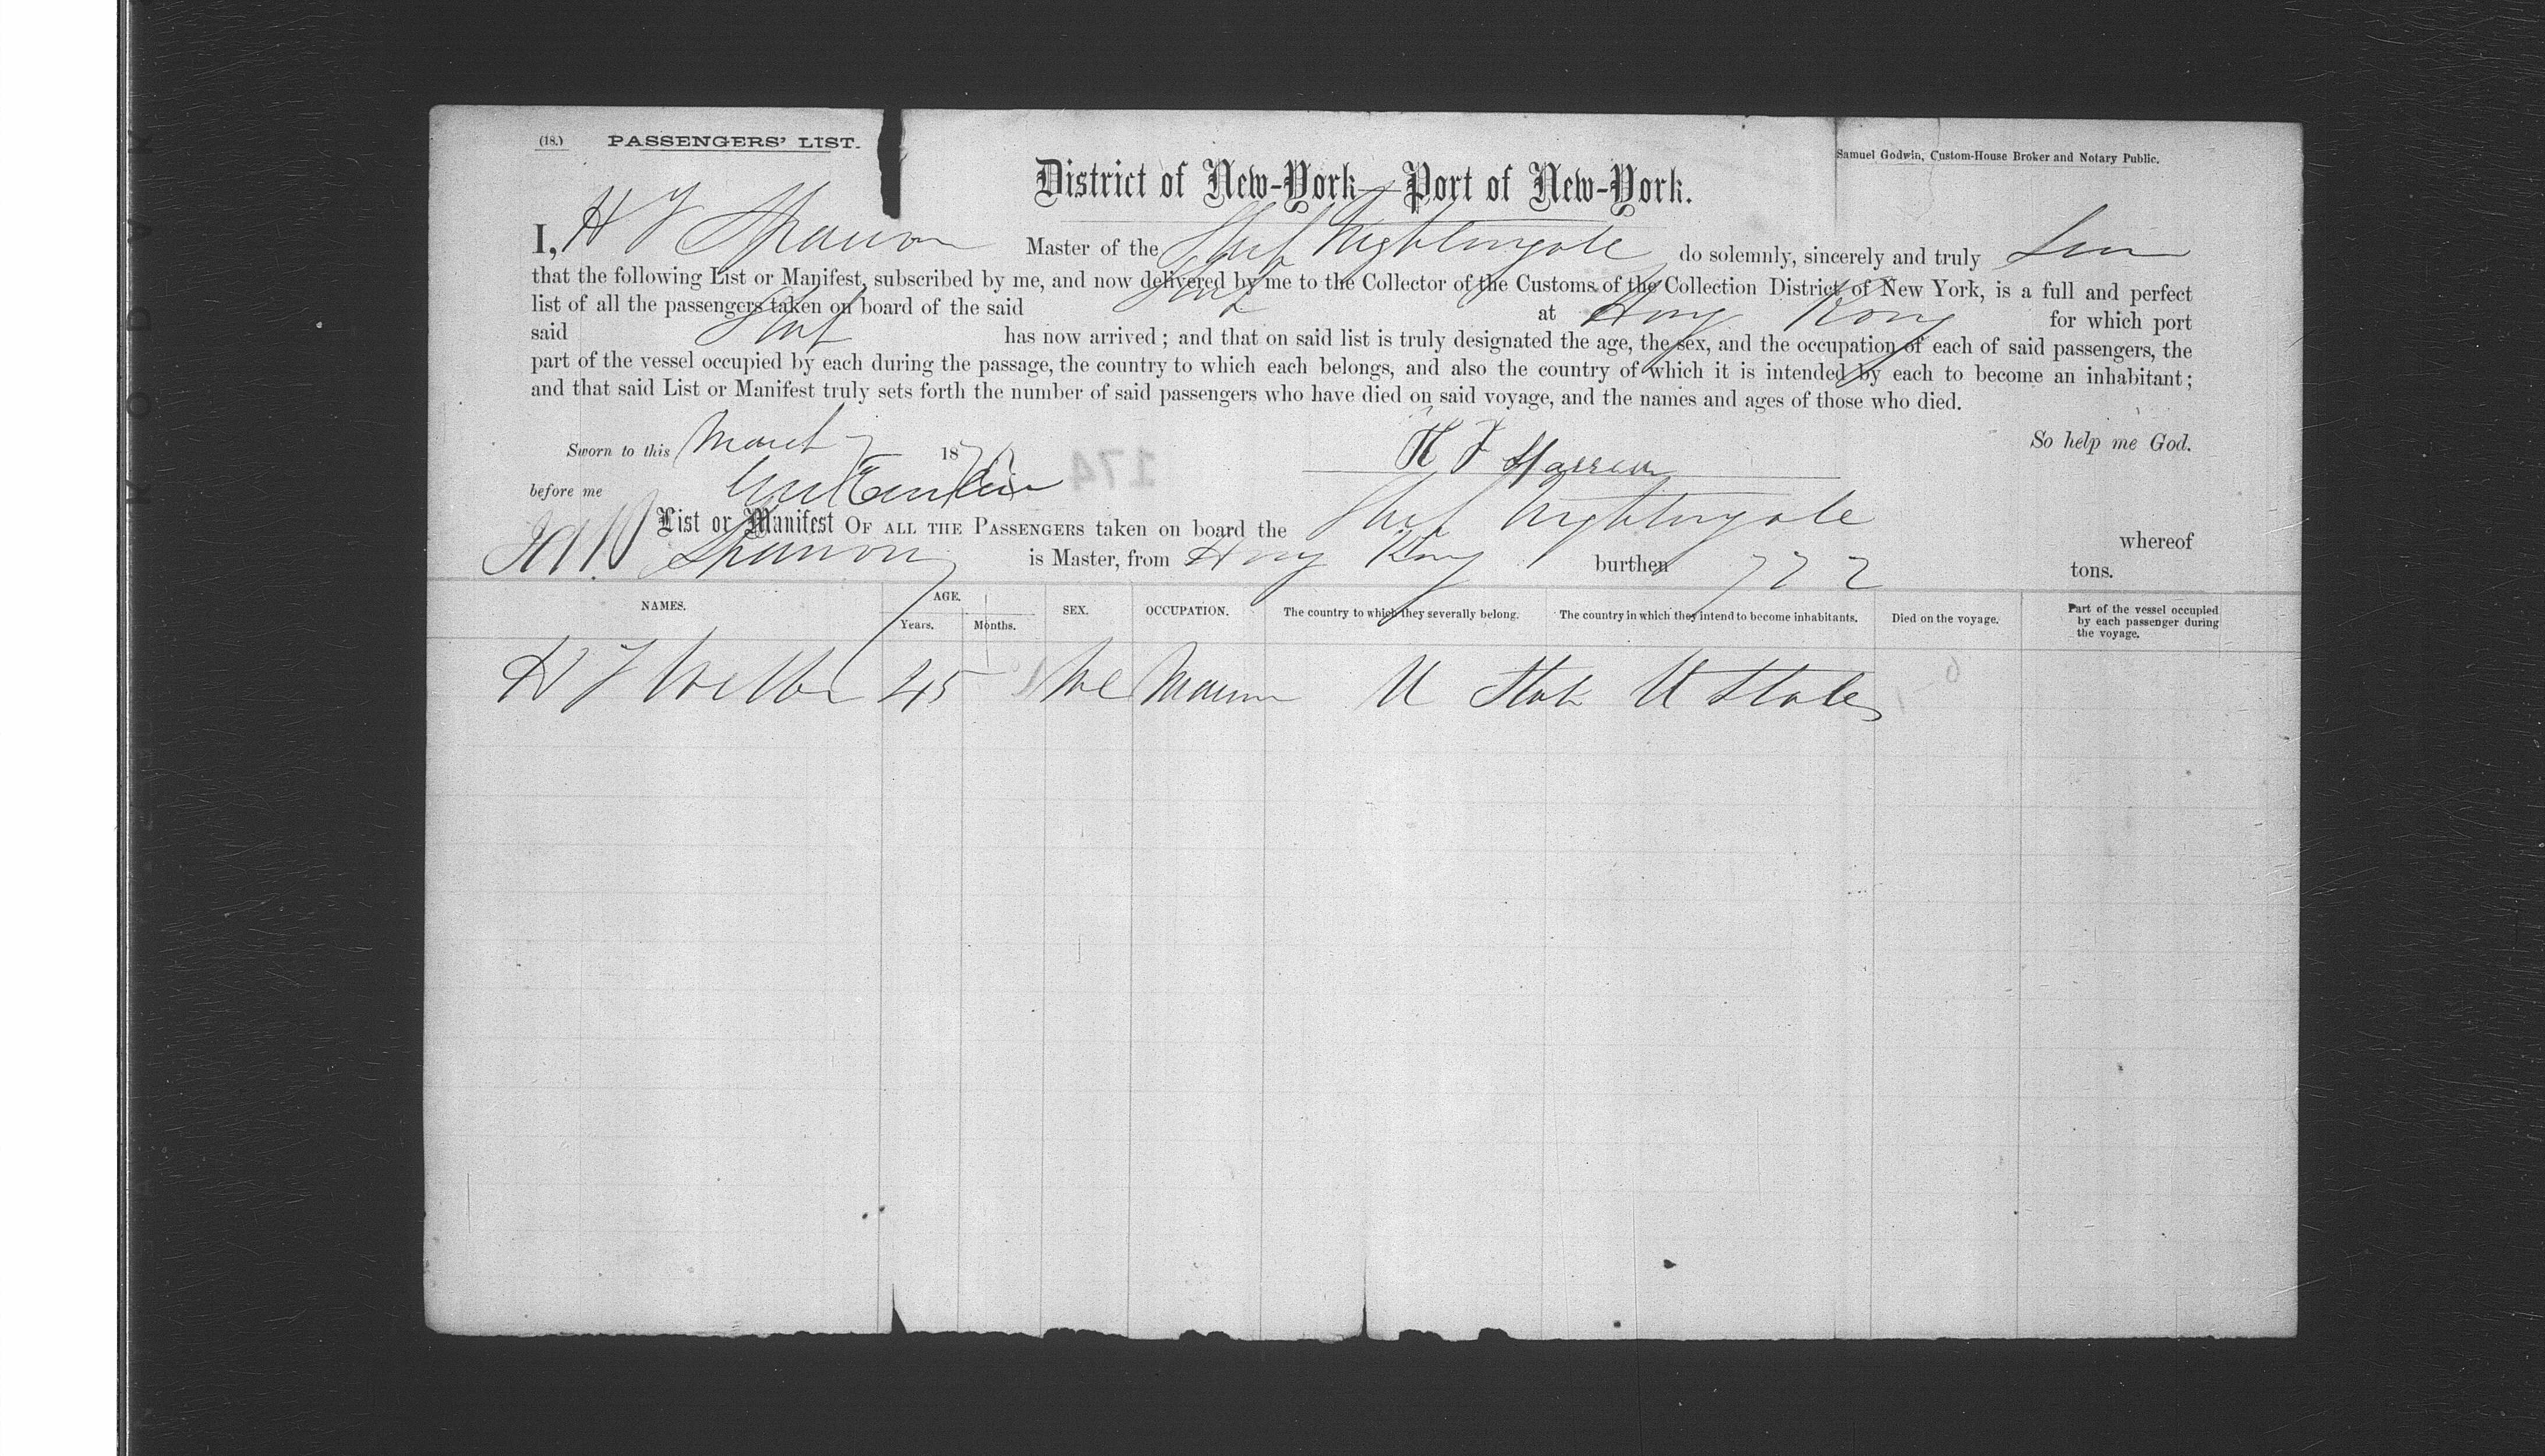 (18.) PASSENGERS' LIST.
Samuel Godwin, Custom-House Broker and Notary Public.
District of New-York—Port of New-York.
I, H F Master of the Ship Nightingale do solemnly, sincerely and truly
that the following List or Manifest, subscribed by me, and now delivered by me to the Collector of the Customs of the Collection District of New York, is a full and perfect
list of all the passengers taken on board of the said Ship at Hong Kong for which port
said Ship has now arrived; and that on said list is truly designated the age, the sex, and the occupation of each of said passengers, the
part of the vessel occupied by each during the passage, the country to which each belongs, and also the country of which it is intended by each to become an inhabitant;
and that said List or Manifest truly sets forth the number of said passengers who have died on said voyage, and the names and ages of those who died.
So help me God.
Sworn to this March 7 187
H F
before me
174
List or Manifest OF ALL THE PASSENGERS taken on board the Ship Nightingale whereof
is Master, from Hong Kong burthen 722 tons.
NAMES. AGE. Years. Months. SEX. OCCUPATION. The country to which they severally belong. The country in which they intend to become inhabitants. Died on the voyage. Part of the vessel occupied by each passenger during the voyage.
45 U States